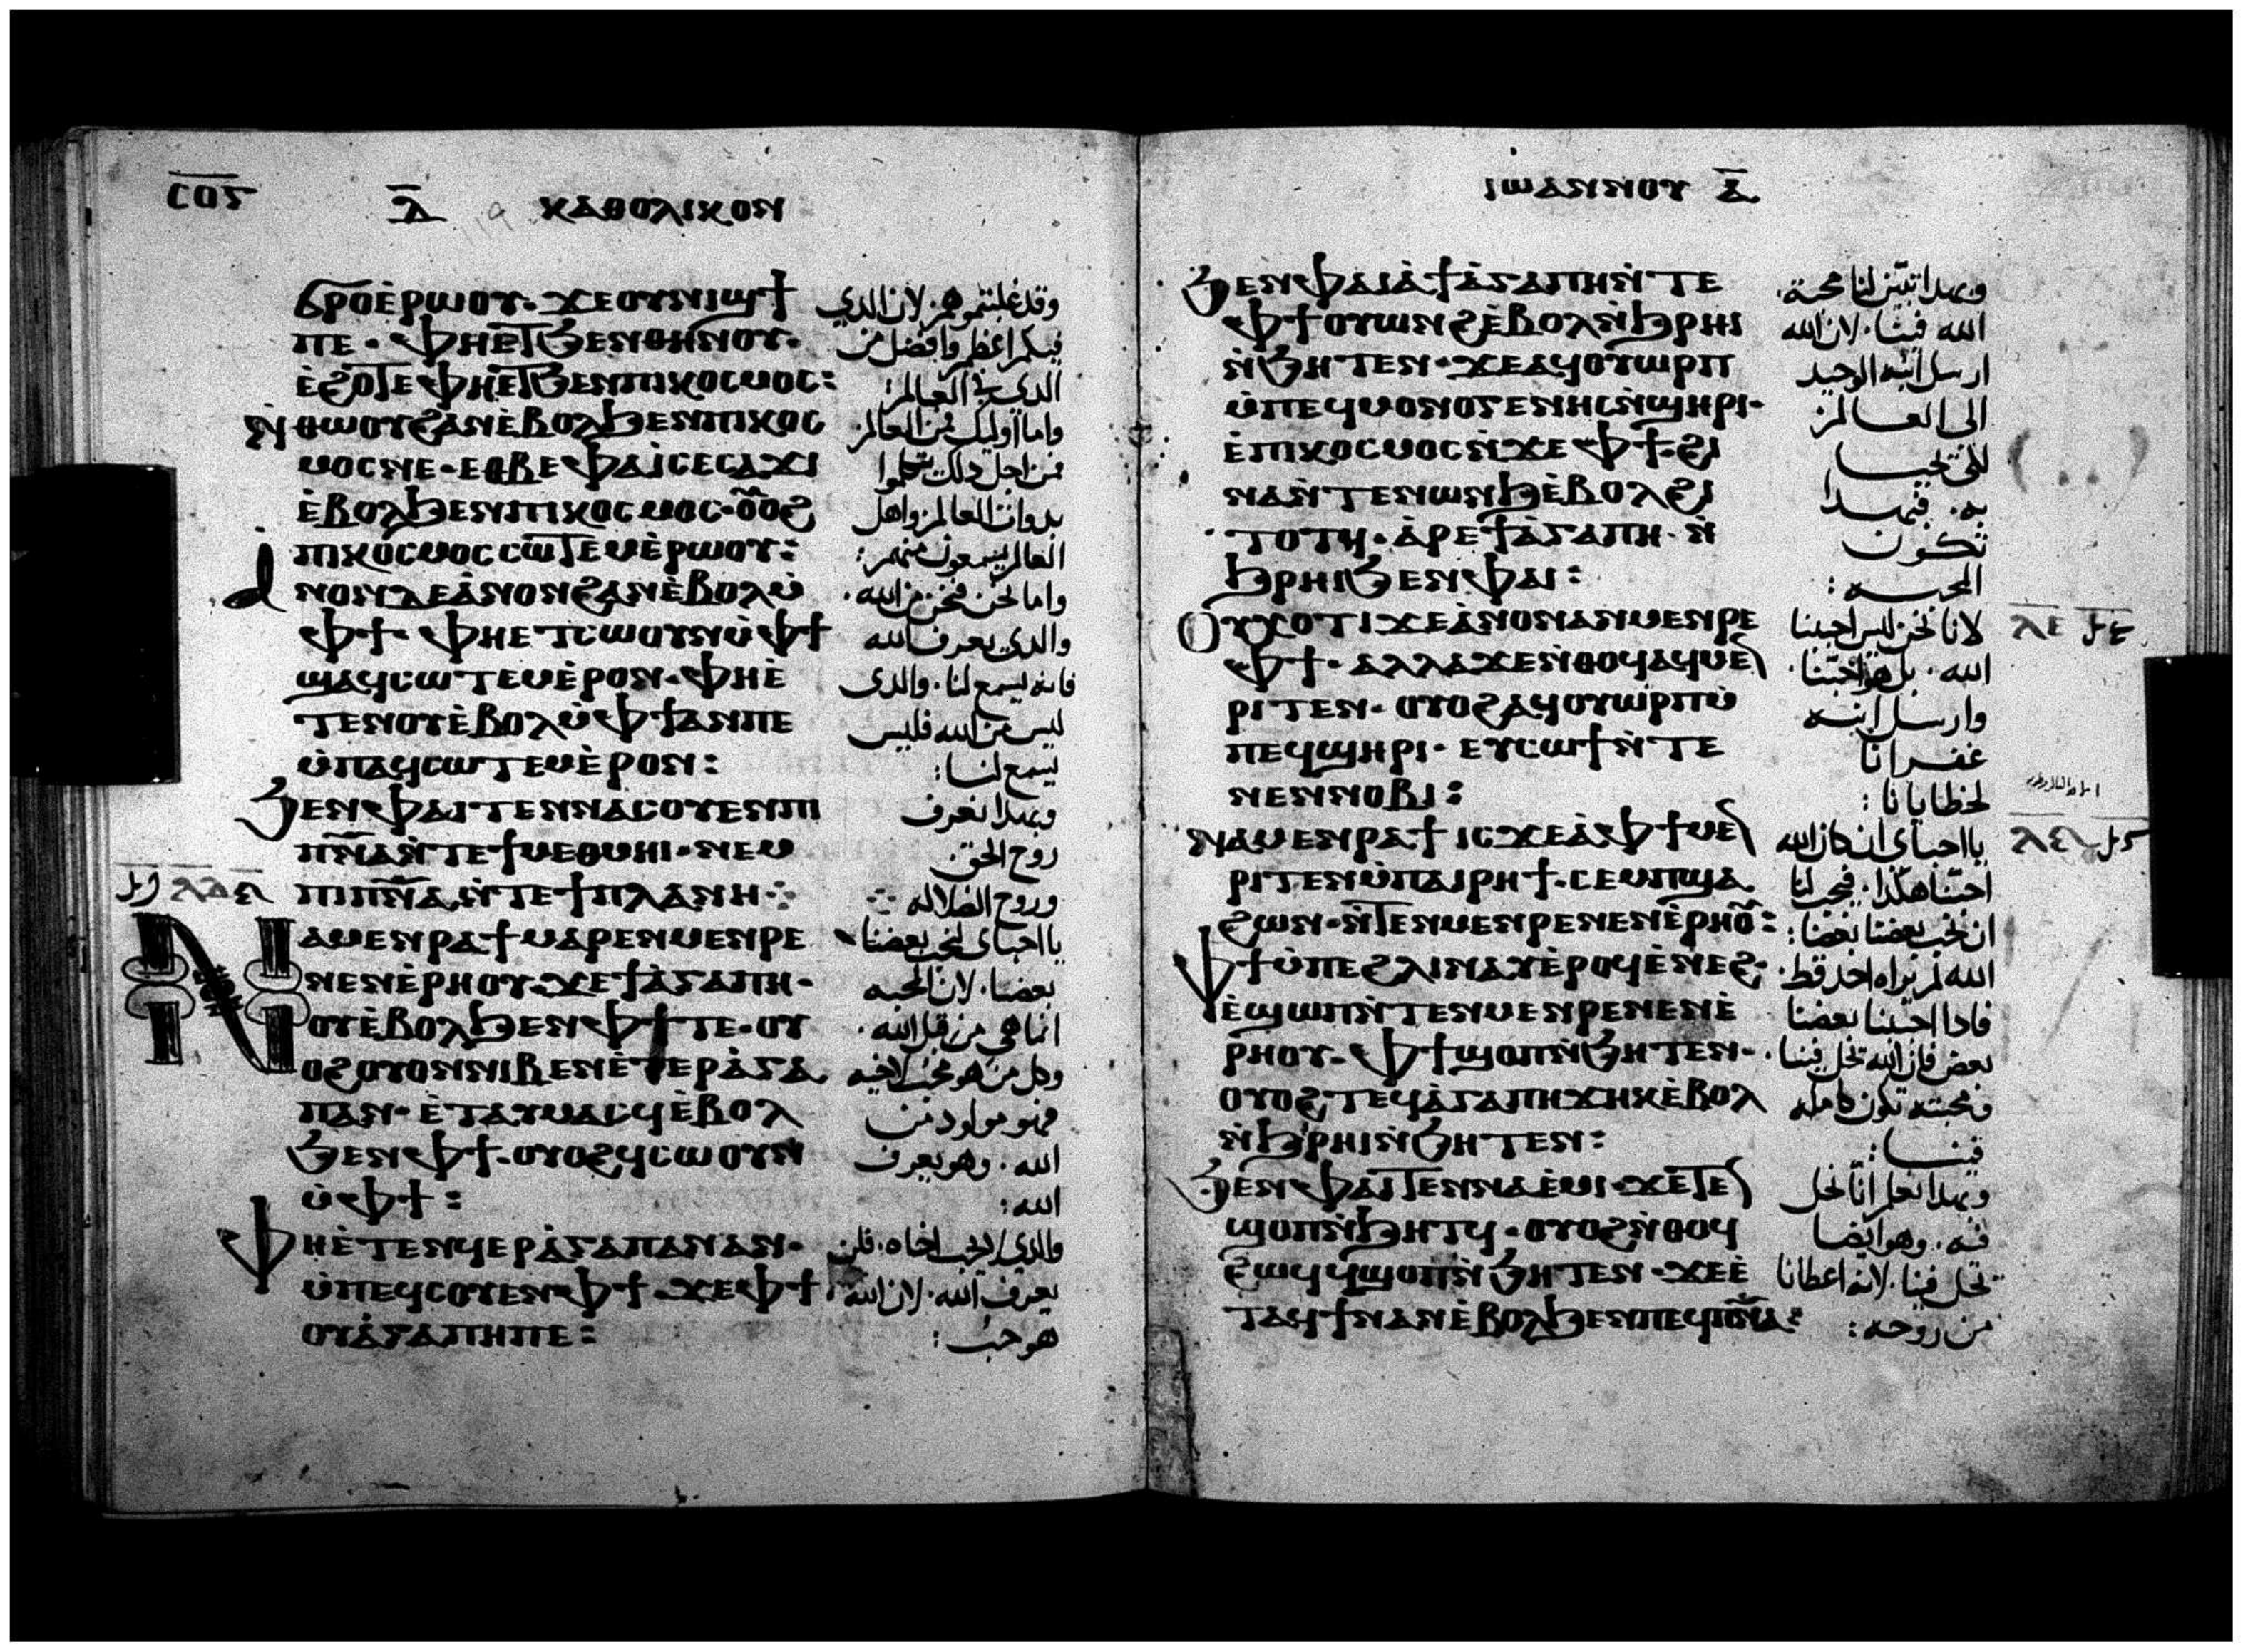 ⲤⲞⲊ
ⲇ̅ ⲔⲀⲐⲞⲖⲒⲔⲞⲚ
ϭⲣⲟ ⲉ̀ⲣⲱⲟⲩ· ϫⲉ ⲟⲩⲛⲓϣϯ
ⲡⲉ· ⲫⲏ ⲉⲧϧⲉⲛ ⲑⲏⲛⲟⲩ·
ⲉ̀ϩⲟⲧⲉ ⲫⲏ ⲉⲧϧⲉⲛ ⲡⲓⲕⲟⲥⲙⲟⲥ:
ⲛ̀ⲑⲱⲟⲩ ϩⲁⲛⲉ̀ⲃⲟⲗ ϧⲉⲛ ⲡⲓⲕⲟⲥ
ⲙⲟⲥ ⲛⲉ· ⲉⲑⲃⲉ ⲫⲁⲓ ⲥⲉⲥⲁϫⲓ
ⲉ̀ⲃⲟⲗ ϧⲉⲛ ⲡⲓⲕⲟⲥⲙⲟⲥ· ⲟⲩⲟϩ
ⲡⲓⲕⲟⲥⲙⲟⲥ ⲥⲱⲧⲉⲙ ⲉ̀ⲣⲱⲟⲩ:
ⲁ̀ⲛⲟⲛ ⲇⲉ ⲁ̀ⲛⲟⲛ ϩⲁⲛⲉ̀ⲃⲟⲗ ⲙ̀
ⲫϯ· ⲫⲏ ⲉⲧⲥⲱⲟⲩⲛ ⲙ̀ⲫϯ
ϣⲁϥⲥⲱⲧⲉⲙ ⲉ̀ⲣⲟⲛ· ⲫⲏ ⲉ̀
ⲧⲉⲛⲟⲩⲉ̀ⲃⲟⲗ ⲙ̀ⲫϯ ⲁⲛ ⲡⲉ
ⲙ̀ⲡⲁϥⲥⲱⲧⲉⲙ ⲉ̀ⲣⲟⲛ:
ϧⲉⲛ ⲫⲁⲓ ⲧⲉⲛⲛⲁⲥⲟⲩⲉⲛ ⲡⲓ
ⲡⲛⲁ ⲛ̀ⲧⲉ ϯⲙⲉⲑⲙⲏⲓ· ⲛⲉⲙ
ⲡⲓⲡⲛⲁ ⲛ̀ⲧⲉ ϯⲡⲗⲁⲛⲏ
ⲛⲁⲙⲉⲛⲣⲁϯ ⲙⲁⲣⲉⲛⲙⲉⲛⲣⲉ
ⲛⲉⲛⲉ̀ⲣⲏⲟⲩ· ϫⲉ ϯⲁ̀ⲅⲁⲡⲏ·
ⲟⲩⲉ̀ⲃⲟⲗ ϧⲉⲛ ⲫϯ ⲧⲉ· ⲟⲩ
ⲟϩ ⲟⲩⲟⲛ ⲛⲓⲃⲉⲛ ⲉ̀ⲧⲉⲣⲁ̀ⲅⲁ
ⲡⲁⲛ· ⲉ̀ⲧⲁⲩⲙⲁⲥϥ ⲉ̀ⲃⲟⲗ
ϧⲉⲛ ⲫϯ· ⲟⲩⲟϩ ϥⲥⲱⲟⲩⲛ
ⲙ̀ⲫϯ:
ⲫⲏ ⲉ̀ⲧⲉⲛϥⲉⲣⲁ̀ⲅⲁⲡⲁⲛ ⲁⲛ·
ⲙ̀ⲡⲉϥⲥⲟⲩⲉⲛ ⲫϯ· ϫⲉ ⲫϯ
ⲟⲩⲁ̀ⲅⲁⲡⲏ ⲡⲉ:
وقد غلبتموهم· لان الدي
فيكم اعظم وافضل من
الدي في العالم:
واما اوليك فمن العالم
فمن اجل دلك يتكلموا
بدوات العالم واهل
العالم يسمعون منهم:
واما نحن فنحن من الله·
والدي يعرف الله
فانه يسمع لنا· والدى
ليس من الله فليس
يسمع لنا:
وبهدا نعرف
روح الحق
وروح الضلاله
يا احباى لنحب بعضنا
بعضا· لان المحبه
انما هي من قبل الله·
وكل من هو محب لاخيه
فهو مولود من
الله· وهو يعرف
الله:
والدي لا يحب اخاه· فلن
يعرف الله· لان الله
هو حب:
ⲒⲰⲀⲚⲚⲞⲨ ⲁ̅
ϧⲉⲛ ⲫⲁⲓ ⲁ̀ ϯⲁ̀ⲅⲁⲡⲏ ⲛ̀ⲧⲉ
ⲫϯ ⲟⲩⲱⲛϩ ⲉ̀ⲃⲟⲗ ⲛ̀ϧⲣⲏⲓ
ⲛ̀ϧⲏⲧⲉⲛ· ϫⲉ ⲁϥⲟⲩⲱⲣⲡ
ⲙ̀ⲡⲉϥⲙⲟⲛⲟⲅⲉⲛⲏⲥ ⲛ̀ϣⲏⲣⲓ·
ⲉ̀ⲡⲓⲕⲟⲥⲙⲟⲥ ⲛ̀ϫⲉ ⲫϯ· ϩⲓ
ⲛⲁ ⲛ̀ⲧⲉⲛⲱⲛϧ ⲉ̀ⲃⲟⲗ ϩⲓ
ⲧⲟⲧϥ· ⲁ̀ⲣⲉ ϯⲁ̀ⲅⲁⲡⲏ· ⲛ̀
ϧⲣⲏⲓ ϧⲉⲛ ⲫⲁⲓ:
ⲟⲩⲭ ⲟⲧⲓ ϫⲉ ⲁ̀ⲛⲟⲛ ⲁⲛⲙⲉⲛⲣⲉ
ⲫϯ· ⲁⲗⲗⲁ ϫⲉ ⲛ̀ⲑⲟϥ ⲁϥⲙⲉ
ⲣⲓⲧⲉⲛ· ⲟⲩⲟϩ ⲁϥⲟⲩⲱⲣⲡ ⲙ̀
ⲡⲉϥϣⲏⲣⲓ· ⲉⲩⲥⲱϯ ⲛ̀ⲧⲉ
ⲛⲉⲛⲛⲟⲃⲓ:
ⲛⲁⲙⲉⲛⲣⲁϯ ⲓⲥϫⲉ ⲁ̀ ⲫϯ ⲙⲉ
ⲣⲓⲧⲉⲛ ⲙ̀ⲡⲁⲓⲣⲏϯ· ⲥⲉⲙⲡϣⲁ
ϩⲱⲛ· ⲛ̀ⲧⲉⲛⲙⲉⲛⲣⲉ ⲛⲉⲛⲉ̀ⲣⲏⲟⲩ:
ⲫϯ ⲙ̀ⲡⲉ ϩⲗⲓ ⲛⲁⲩ ⲉ̀ⲣⲟϥ ⲉ̀ⲛⲉϩ·
ⲉ̀ϣⲱⲡ ⲛ̀ⲧⲉⲛⲙⲉⲛⲣⲉ ⲛⲉⲛⲉ̀
ⲣⲏⲟⲩ· ⲫϯ ϣⲟⲡ ⲛ̀ϧⲏⲧⲉⲛ·
ⲟⲩⲟϩ ⲧⲉϥⲁ̀ⲅⲁⲡⲏ ϫⲏⲕ ⲉ̀ⲃⲟⲗ
ⲛ̀ϧⲣⲏⲓ ⲛ̀ϧⲏⲧⲉⲛ:
ϧⲉⲛ ⲫⲁⲓ ⲧⲉⲛⲛⲁⲉ̀ⲙⲓ· ϫⲉ ⲧⲉ
ϣⲟⲡ ⲛ̀ϧⲏⲧϥ· ⲟⲩⲟϩ ⲛ̀ⲑⲟϥ
ϩⲱϥ ϥϣⲟⲡ ⲛ̀ϧⲏⲧⲉⲛ· ϫⲉ ⲉ̀
ⲧⲁϥϯ ⲛⲁⲛ ⲉ̀ⲃⲟⲗ ϧⲉⲛ ⲡⲉϥⲡⲛⲁ:
وبهدا تبين لنا محبة·
الله فينا· لان الله
ارسل ابنه الوحيد
الى العالم
لكي نحيا
به· فبهدا
تكون
المحبه:
لانا نحن ليس احببنا
الله· بل هو احبنا·
وارسل ابنه
غفرانا
لخطايانا:
يا احباى ان كان الله
احبنا هكدا· فيجب لنا
ان نحب بعضنا بعضا:
الله لم يراه احد قط·
فادا احببنا بعضنا
بعض فان الله يحل فينا·
ومحبته تكون كامله
فينا:
وبهدا نعلم انا نحل
فيه· وهو ايضا
يحل فينا· لانه اعطانا
من روحه: